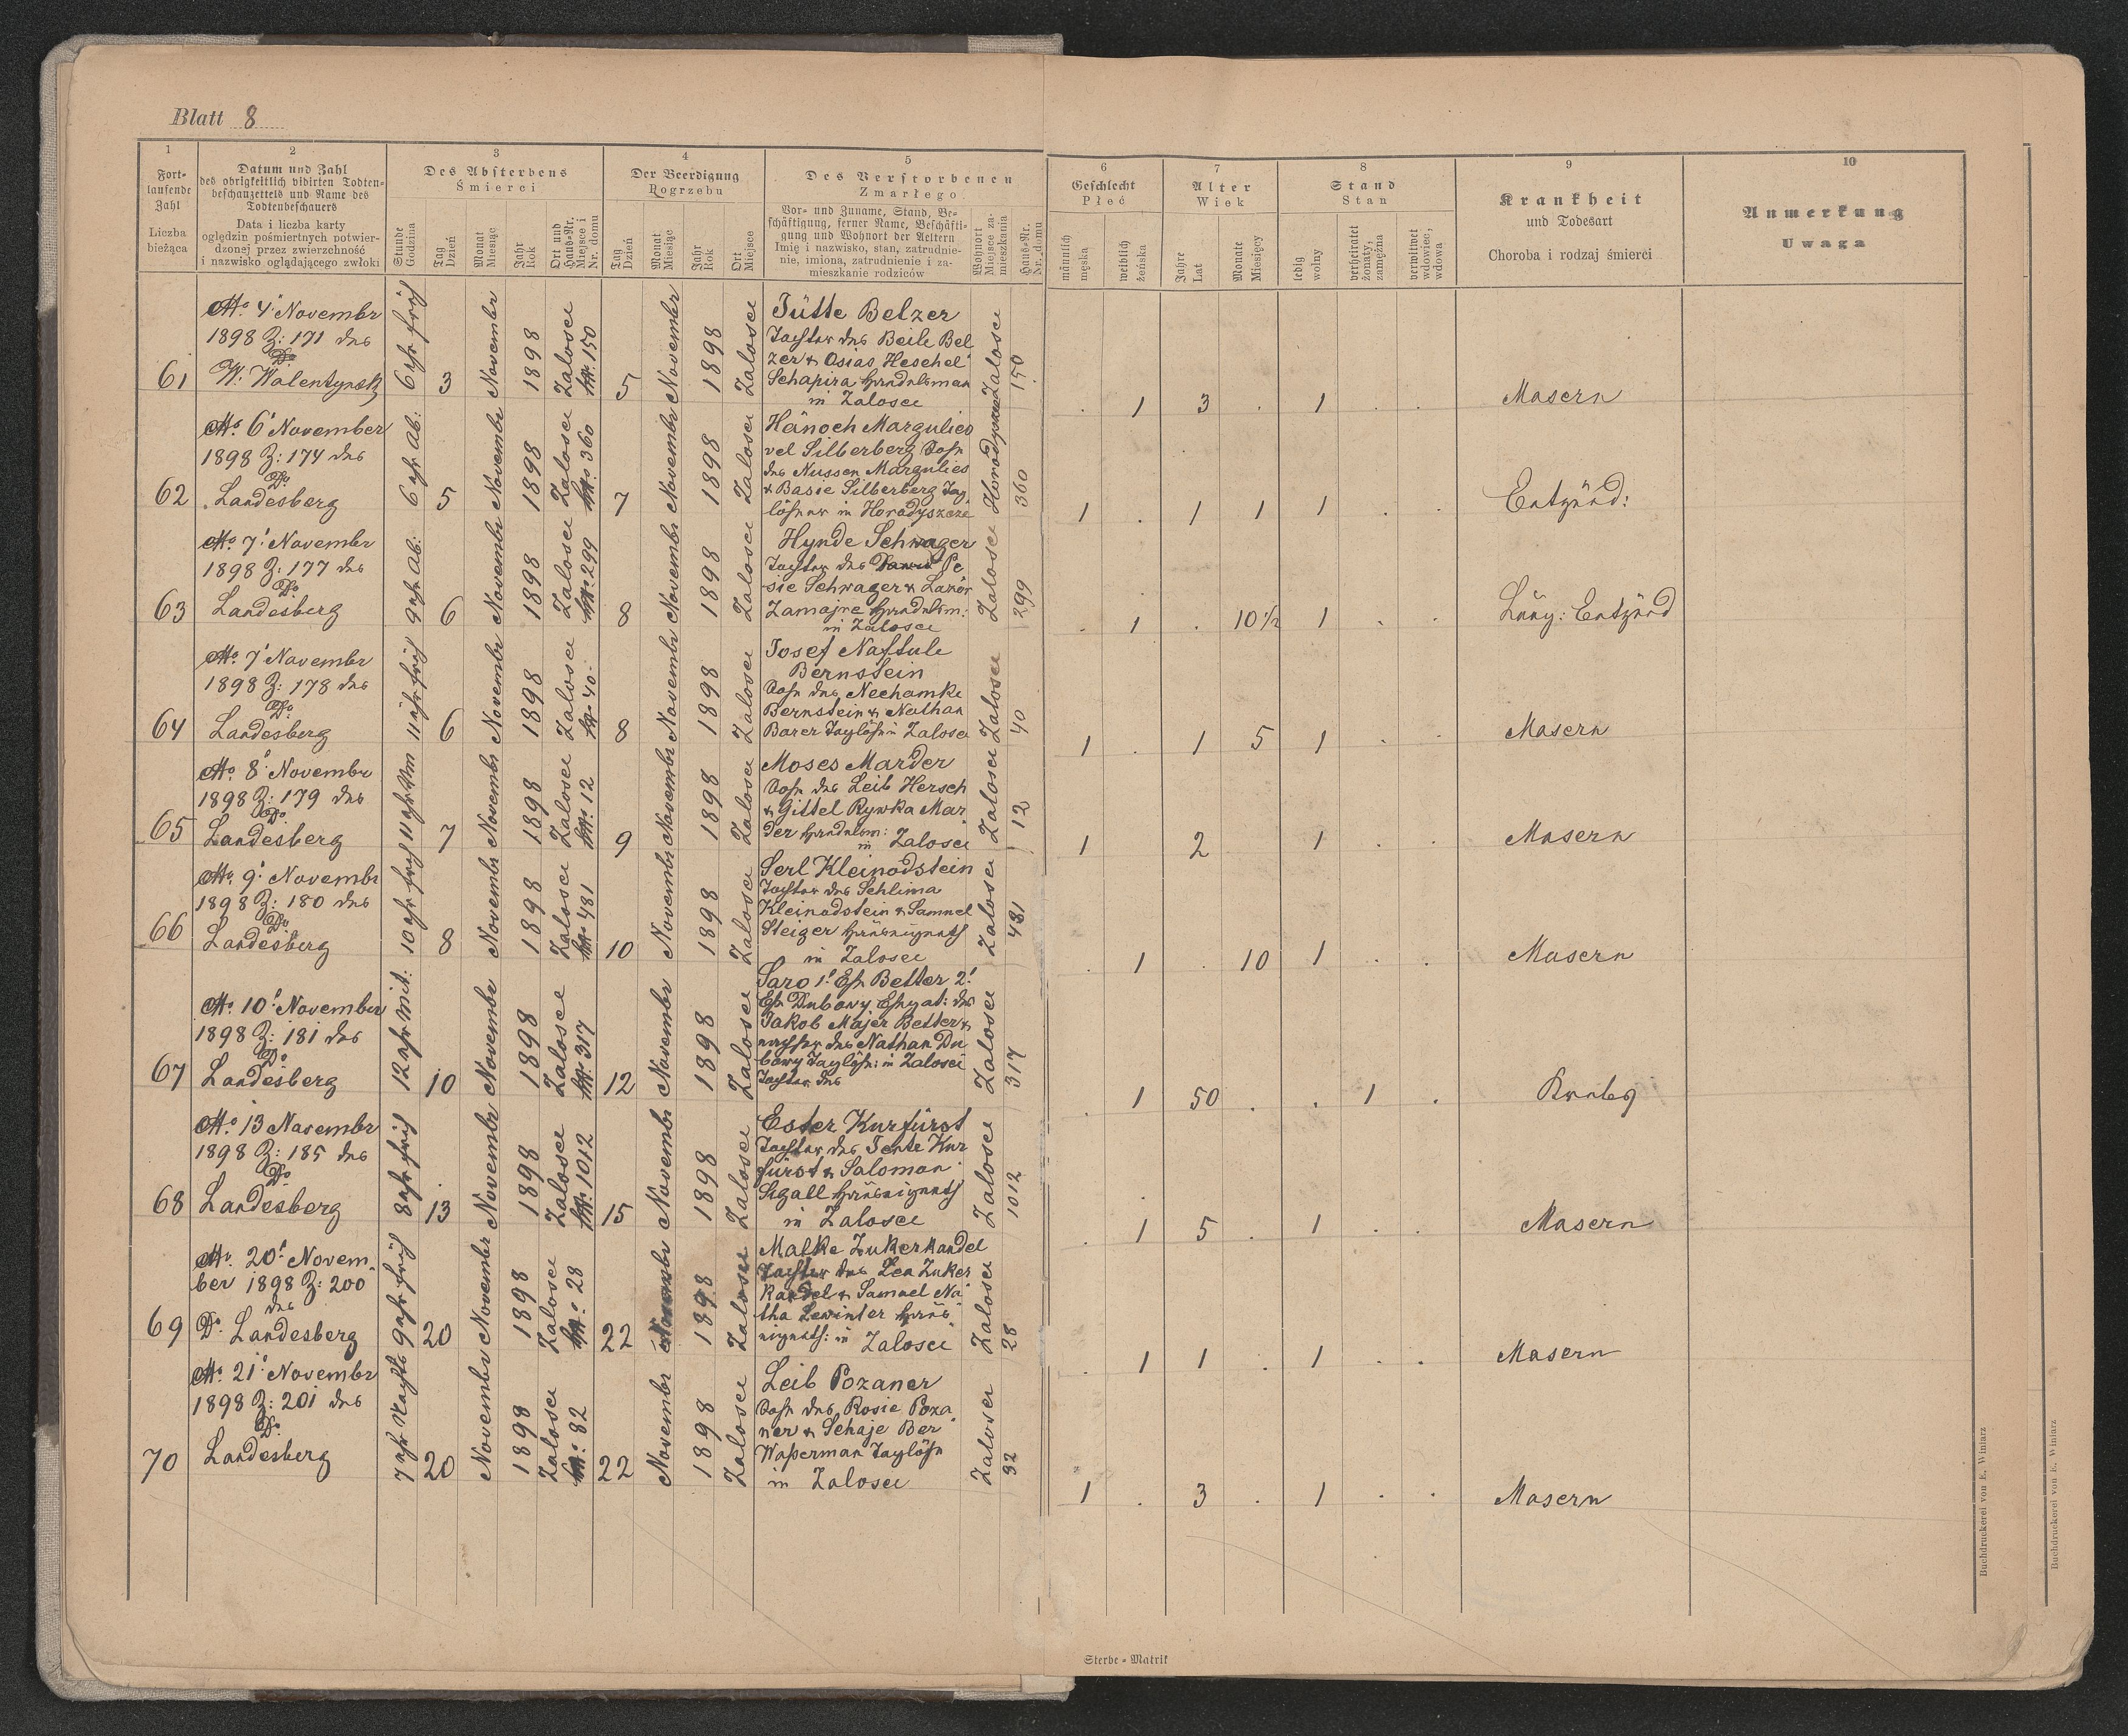 Blatt 8
1
Fort-
laufende
Zahl
Liczba
bieżąca
2
Datum und Zahl
des obrigkeitlich vidirten Todten-
beschauzettels und Name des
Todtenbeschauers
Data i liczba karty
oględzin pośmiertnych potwier-
dzonej przez zwierzchność
i nazwisko oglądającego zwłoki
3
Des Absterbens
Śmierci
Stunde
Godzina
Tag
Dzień
Monat
Miesiąc
Jahr
Rok
Ort und
Haus-Nr.
Miejsce i
Nr. domu
4
Der Beerdigung
Pogrzebu
Tag
Dzień
Monat
Miesiąc
Jahr
Rok
Ort
Miejsce
5
Des Verstorbenen
Zmarłego
Vor- und Zuname, Stand, Be-
schäftigung, ferner Name, Beschäfti-
gung und Wohnort der Aeltern
Imię i nazwisko, stan, zatrudnie-
nie, imiona, zatrudnienie i za-
mieszkanie rodziców
Wohnort
Miejsce za-
mieszkania
Haus-Nr.
Nr. domu
6
Geschlecht
Płeć
männlich
męska
weiblich
żeńska
7
Alter
Wiek
Jahre
Lat
Monate
Miesięcy
8
Stand
Stan
ledig
wolny
verheiratet
żonaty,
zamężna
verwitwet
wdowiec,
wdowa
9
Krankheit
und Todesart
Choroba i rodzaj śmierci
10
Anmerkung
Uwaga
61
4' Novembr
1898 Z: 171 des
Dr
W. Walentynsk
6 uhr früh
3
Novembr
1898
Zalosce
150
5
Novembr
1898
Zalosce
Tütte Belzer
Tochter des Beile Bel
zer & Osias Heschel
Schapira Handelsman
in Zalosce
Zalosce
150
1 3 1
Masern
62
6' November
1898 Z: 174 des
Dr
Landesberg
6 uhr Ab:
5
Novembr
1898
Zalosce
360
7
Novembr
1898
Zalosce
Hänoch Margulies
vel Silberberg Sohn
des Nussen Margulies
& Basie Silberberg Tag
löhner in Horodyszcze
360
1 1 1 1
Entzünd:
63
7' Novembr
1898 Z: 177 des
Dr
Landesberg
9 uhr Ab:
6
Novembr
1898
Zalosce
299
8
Novembr
1898
Zalosce
Hynde Schwager
Tochter des Pe
sie Schwager & Lazor
Zamojre Handelsm:
in Zalosce
Zalosce
299
1 10 1/2 1
Lung: Entzünd
64
7' Novembr
1898 Z: 178 des
Dr
Landesberg
11 uhr früh
6
Novembr
1898
Zalosce
40
8
Novembr
1898
Zalosce
Josef Naftule
Bernstein
Sohn des Nechamke
Bernstein & Nathan
Barer Taglöh in Zalosce
Zalosce
40
1 1 5 1
Masern
65
8' Novembr
1898 Z: 179 des
Dr
Landesberg
11 uhr Vm
7
Novembr
1898
Zalosce
12
9
Novembr
1898
Zalosce
Moses Marder
Sohn des Leib Hersch
& Gittel Rywka Mar
der Handelsm:
in Zalosce
Zalosce
12
1 2 1
Masern
66
9' Novembr
1898 Z: 180 des
Dr
Landesberg
10 uhr früh
8
Novembr
1898
Zalosce
481
10
Novembr
1898
Zalosce
Serl Kleinodstein
Tochter des Schlima
Kleinodstein & Samuel
Steiger Hauseigenth
in Zalosce
Zalosce
481
1 10 1
Masern
67
10' November
1898 Z: 181 des
Dr
Landesberg
12 uhr Mit:
10
Novembr
1898
Zalosce
317
12
Novembr
1898
Zalosce
Saro 1' Eh Better 2'
Eh Dubowy Ehgat: des
Jakob Majer Better &
nachher des Nathan Du
bowy Taglöh: in Zalosce
Tochter des
Zalosce
317
1 50 1
Krebs
68
13 November
1898 Z: 185 des
Dr
Landesberg
8 uhr früh
13
Novembr
1898
Zalosce
1012
15
Novembr
1898
Zalosce
Ester Kurfürst
Tochter des Tente Kur
fürst & Saloman
Segall Hauseigenth
in Zalosce
Zalosce
1012
1 5 1
Masern
69
20' Novem
ber 1898 Z: 200
des
Dr. Landesberg
9 uhr früh
20
November
1898
Zalosce
28
22
Novembr
1898
Zalosce
Malke Zukerkandel
Tochter des Lea Zuker
kandel & Samuel Na
tha Lewinter Haus
eigenth: in Zalosce
Zalosce
28
1 1 1
Masern
70
21' Novembr
1898 Z: 201 des
Dr
Landesberg
7 uhr Nachts
20
Novembr
1898
Zalosce
82
22
Novembr
1898
Zalosce
Leib Pozaner
Sohn des Rosie Poza
ner & Schaje Ber
Waßerman Taglöh
in Zalosce
Zalosce
1 3 1
Masern
Sterbe-Matrik
Buchdruckerei von E. Winiarz
Buchdruckerei von E. Winiarz